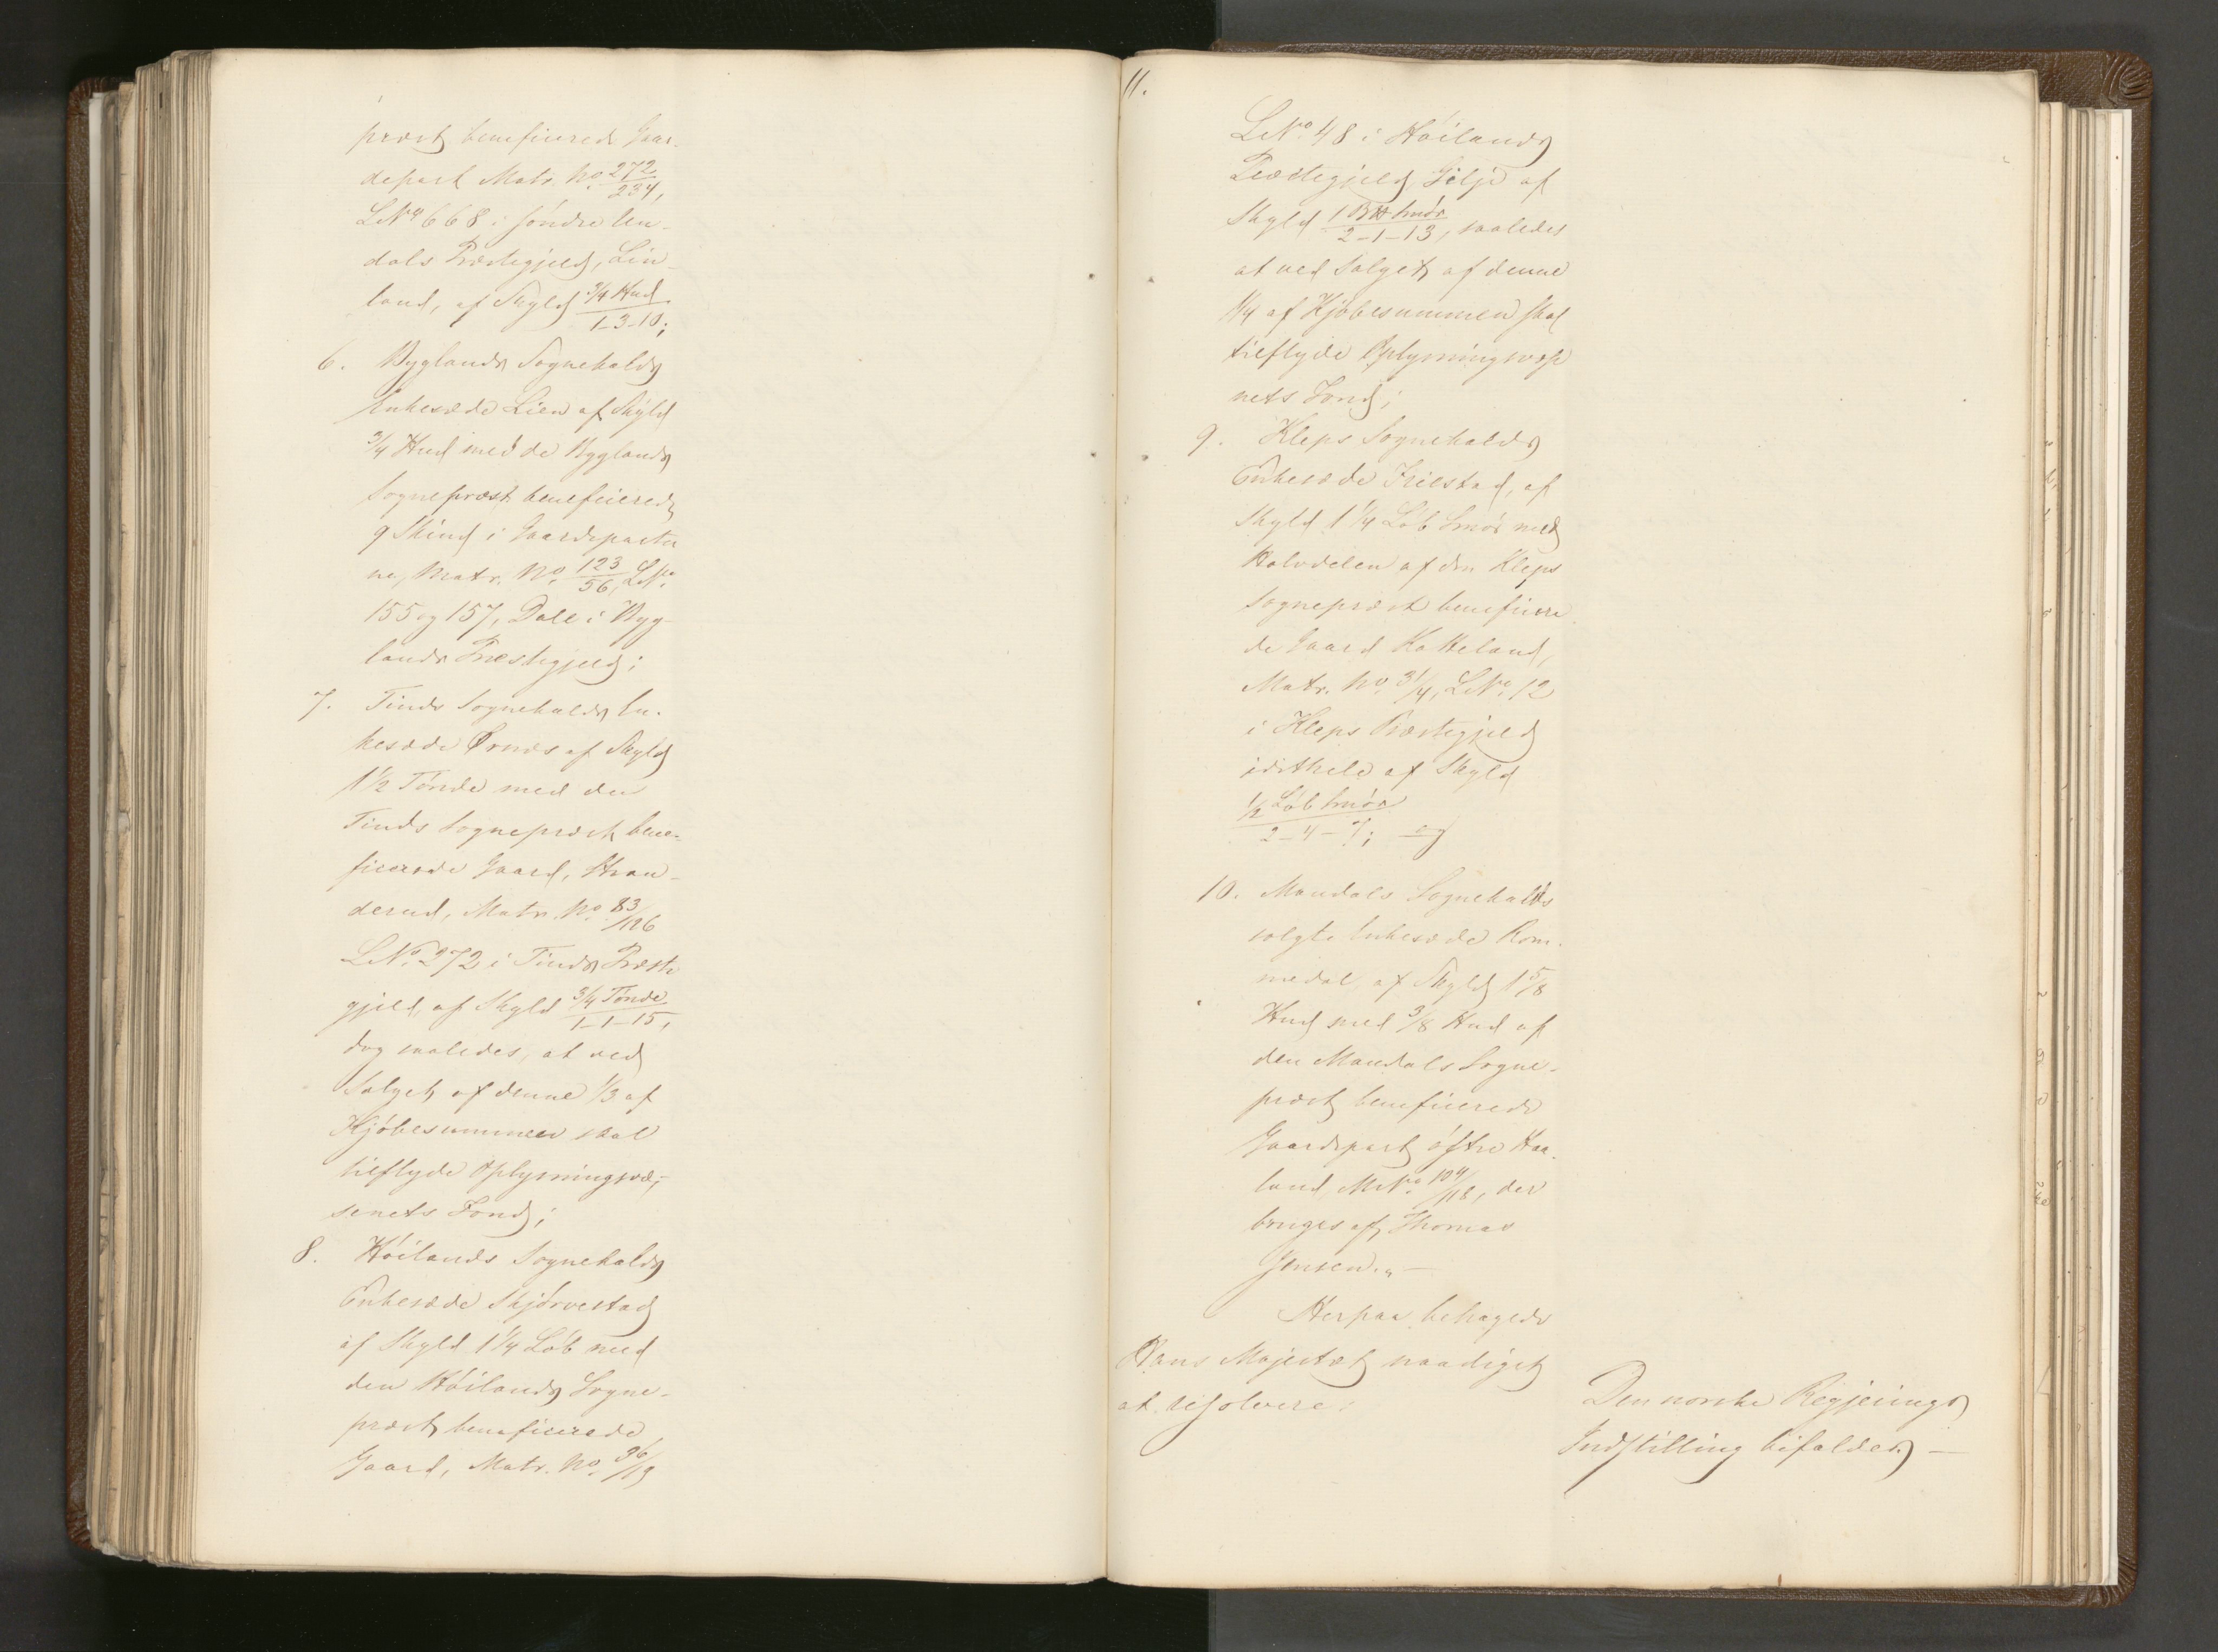 præst beneficerede Gaar-
depart Matr. No 272/234,
LNo 668 i søndre Un-
dals Præstegjeld, Lin-
land, af Skyld 3/4 Hud/1-3-10;
6. Byglands Sognekalds
Enkesæde Lien af Skyld
3/4 Hud med de Byglands
Sognepræst beneficerede
9 Skind i Gaardeparter
ne, Matr. No 123/56, LNo
155 og 157, Dale i Byg-
lands Præstegjeld;
7. Tinds Sognekalds En-
kesæde Ørnæs af Skyld
1 1/2 Tønde med den
Tinds Sognepræst bene-
ficerede Gaard, Stran-
derud, Matr. No 83/126
LNo 272 i Tinds Præste
gjeld, af Skyld 3/4 Tønde/1-1-15,
dog saaledes, at ved
Salget af denne 1/3 af
Kjøbesummen skal
tilflyde Oplysningsvæ-
senets Fond;
8. Høilands Sognekalds
Enkesæde Skjørvestad
af Skyld 1 1/4 Løb med
den Høilands Sogne-
præst beneficerede
Gaard, Matr. No 36/19
11.
LNo 48 i Høilands
Præstegjeld Gilje af
Skyld 1 B℔ Smør/2-1-13, saaledes
at ved Salget af denne
1/4 af Kjøbesummen skal
tilflyde Oplysningsvæse
nets Fond;
9. Kleps Sognekalds
Enkesæde Friestad, af
Skyld 1 1/4 Løb Smør med
Halvdelen af den Kleps
Sognepræst beneficere
de Gaard Katteland,
Matr. No 31/4, LNo 12
i Kleps Præstegjeld
idethele af Skyld
1/2 Løb Smør/2-4-7; og
10. Mandals Sognekalds
solgte Enkesæde Rom-
medal, af Skyld 1 5/8
Hud med 3/8 Hud af
den Mandals Sogne-
præst beneficerede
Gaardspart østre Haa-
land, MNo 104/118, der
bruges af Thomas
Jensen." —
Herpaa behagede
Hans Majestæt naadigst
at resolvere:
Den norske Regjerings
Indstilling bifaldes. —